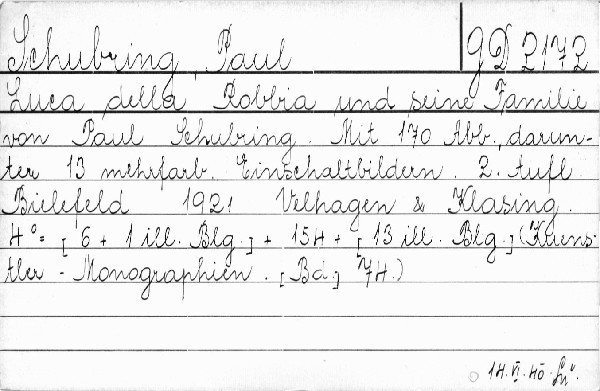 Schubring, Paul gD 2172
Luca della Robbia und seine Familie
von Paul Schubring. Mit 170 Abb., darun-
ter 13 mehrfarb. Einschaltbildern. 2. Aufl.
Bielefeld 1921 Velhagen & Klasing.
4°= [6 + 1 ill. Blg.] + 154 + [13 ill. Blg.] (Kuens-
tler-Monographien. [Bd.] 74.)
14.VI.40.